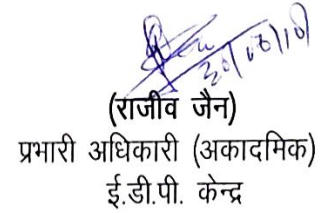 (राजीव जैन)
प्रभारी अधिकारी (अकादमिक)
ई.डी.पी. केन्द्र